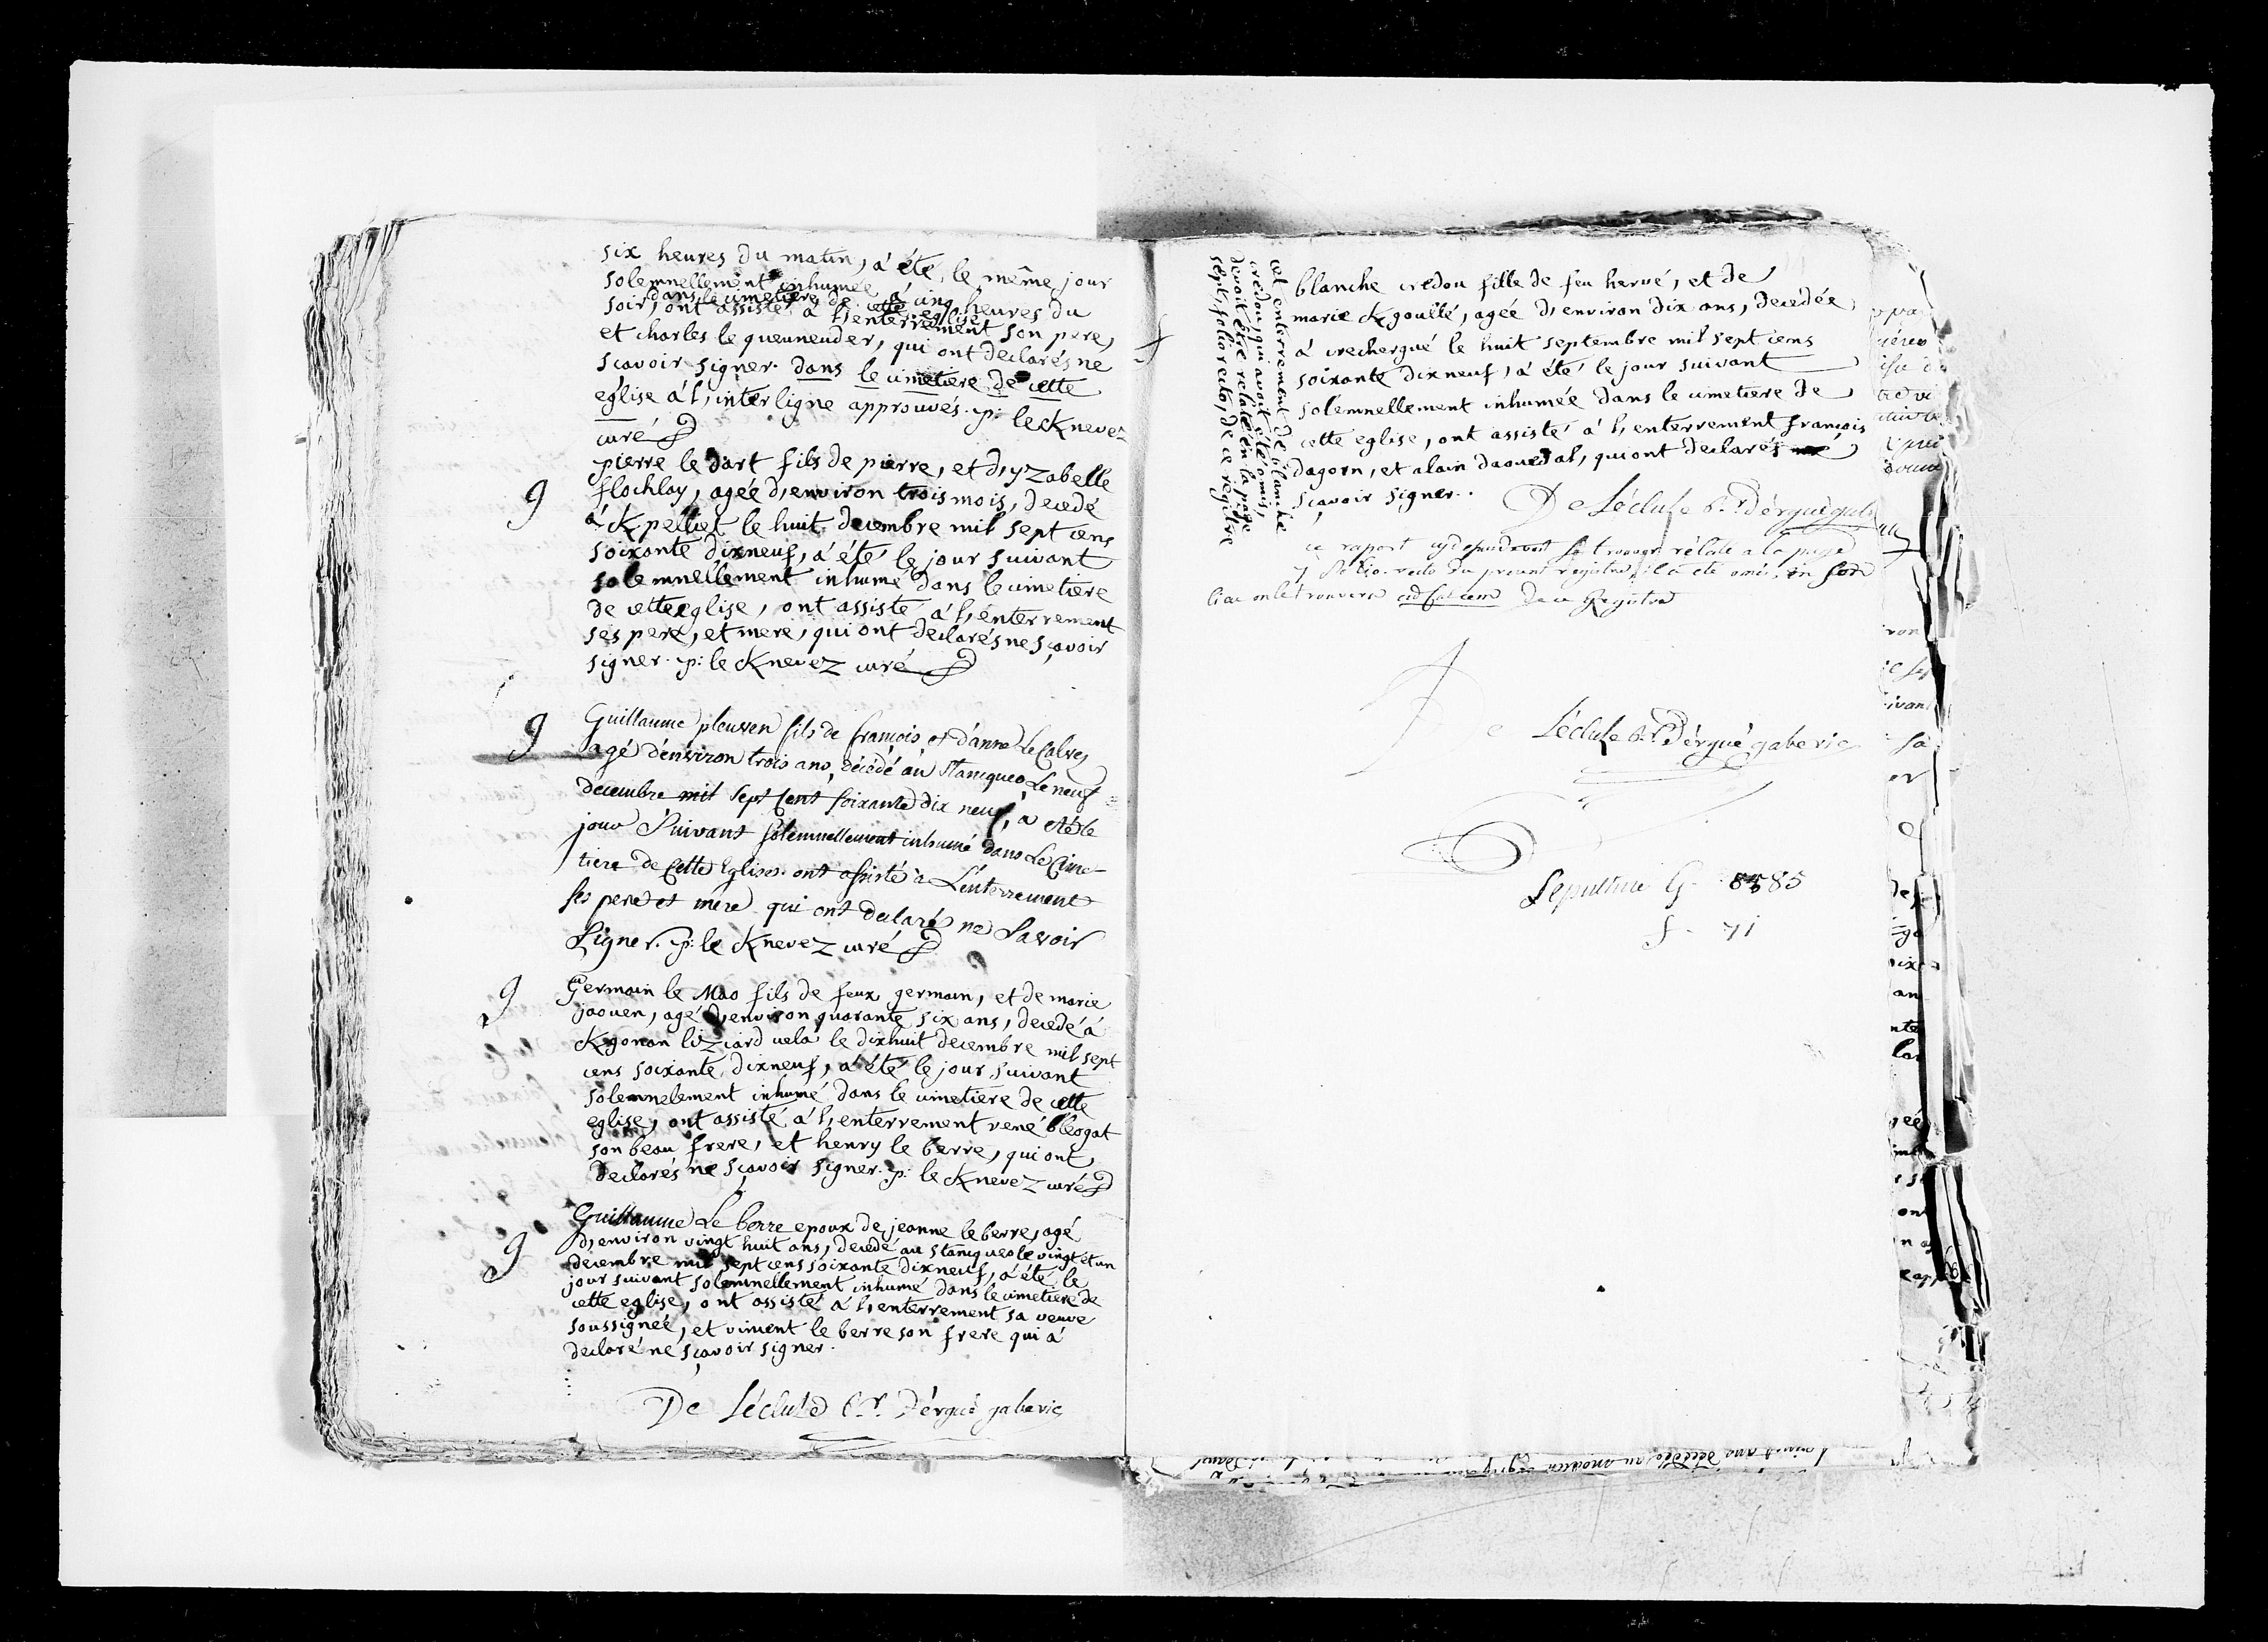 six heures du matin, a été, le même jour
solemnellement inhumée à cinq heures du
dans le cimetiere de cette eglise
soir, ont assisté à l,enterrement son pere,
et charles le queuneuder, qui ont declarés ne
sçavoir signer. dans le cimetiere de cette
eglise à l,interligne approuvés. p: le Knevez
curé
g
pierre le dart fils de pierre, et d,yzabelle
flochlay, agée d,environ trois mois, decedé
à K,pelliet le huit decembre mil sept cens
soixante dixneuf, a été le jour suivant
solemnellement inhumé dans le cimetiere
de cette eglise, ont assisté à l,enterrement
ses pere, et mere, qui ont declarés ne sçavoir
signer. p: le Knevez curé
g
Guillaume pleuven fils de francois et d'anne Le Calvez
agé d'environ trois ans, décédé au Stanqueo Le neuf
decembre mil sept Cent soixante dix neuf, a eté le
jour Suivant solemnellement inhumé dans Le Cime-
tiere de Cette Eglise. ont assisté a L'enterrement
ses pere et mere qui ont declaré ne Savoir
Signer. p: le Knevez curé
g
Germain le Mao fils de feux germain, et de marie
jaouen, agé d,environ quarante six ans, decedé à
K,gonan lizciard uela le dixhuit decembre mil sept
cens soixante dixneuf, a été le jour suivant
solemnelement inhumé dans le cimetiere de cette
eglise, ont assisté à l,enterrement rené bleogat
son beau frere, et henry le berre, qui ont
declarés ne sçavoir signer. p: le Knevez curé
g
Guillaume Le berre epoux de jeanne le berre, agé
d,environ vingt huit ans, decedé au stanqueo le vingt et un
decembre mil sept cens soixante dixneuf, a été le
jour suivant solemnellement inhumé dans le cimetiere de
cette eglise, ont assisté à l,enterrement sa veuve
soussignée, et vincent le berre son frere qui a
declaré ne sçavoir signer.
De Lécluse r.r d'ergué gaberic
cet enterrement de blanche
credou, qui avoit été omis,
devoit être relaté en la page
sept, folio recto, de ce registre
blanche credou fille de feu hervé, et de
marie K,gouilé, agée d,environ dix ans, decédée
à crecherqué le huit septembre mil sept cens
soixante dixneuf, a été le jour suivant
solemnellement inhumée dans le cimetiere de
cette eglise, ont assisté à l,enterrement françois
dagorn, et alain daouedal, qui ont declarés
sçavoir signer.
De Lécluse r.r d'ergué gab
ce raport devant se trouver rélaté a la page
7 folio recto du present registre, il a eté omis, en son
lieu on le trouvera ad calcem de ce Registre
De Lécluse r.r d'érgué gaberic
Sepulture G. 85
f. 71